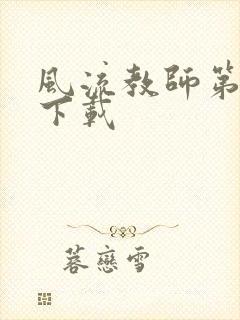 風流教師第
下載
蓉戀雪